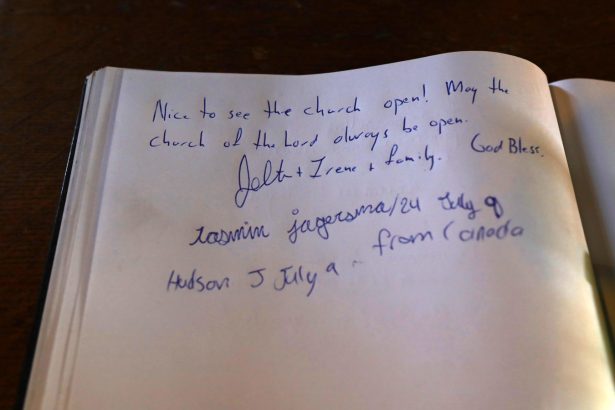 Nice to see the church open! May the
church of the Lord always be open.
God Bless.
Jelt + Irene + family.
jagersma/24 July 9
from Canada
Hudson J July 9